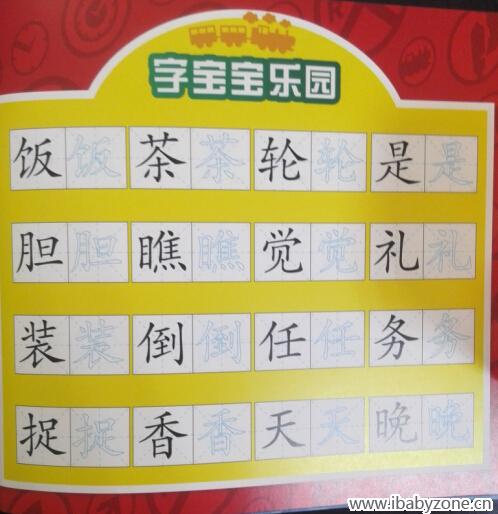 字宝宝乐园
饭 饭 茶 茶 轮 轮 是 是
胆 胆 瞧 瞧 觉 觉 礼 礼
装 装 倒 倒 任 任 务 务
捉 捉 香 香 天 天 晚 晚
www.ibabyzone.cn